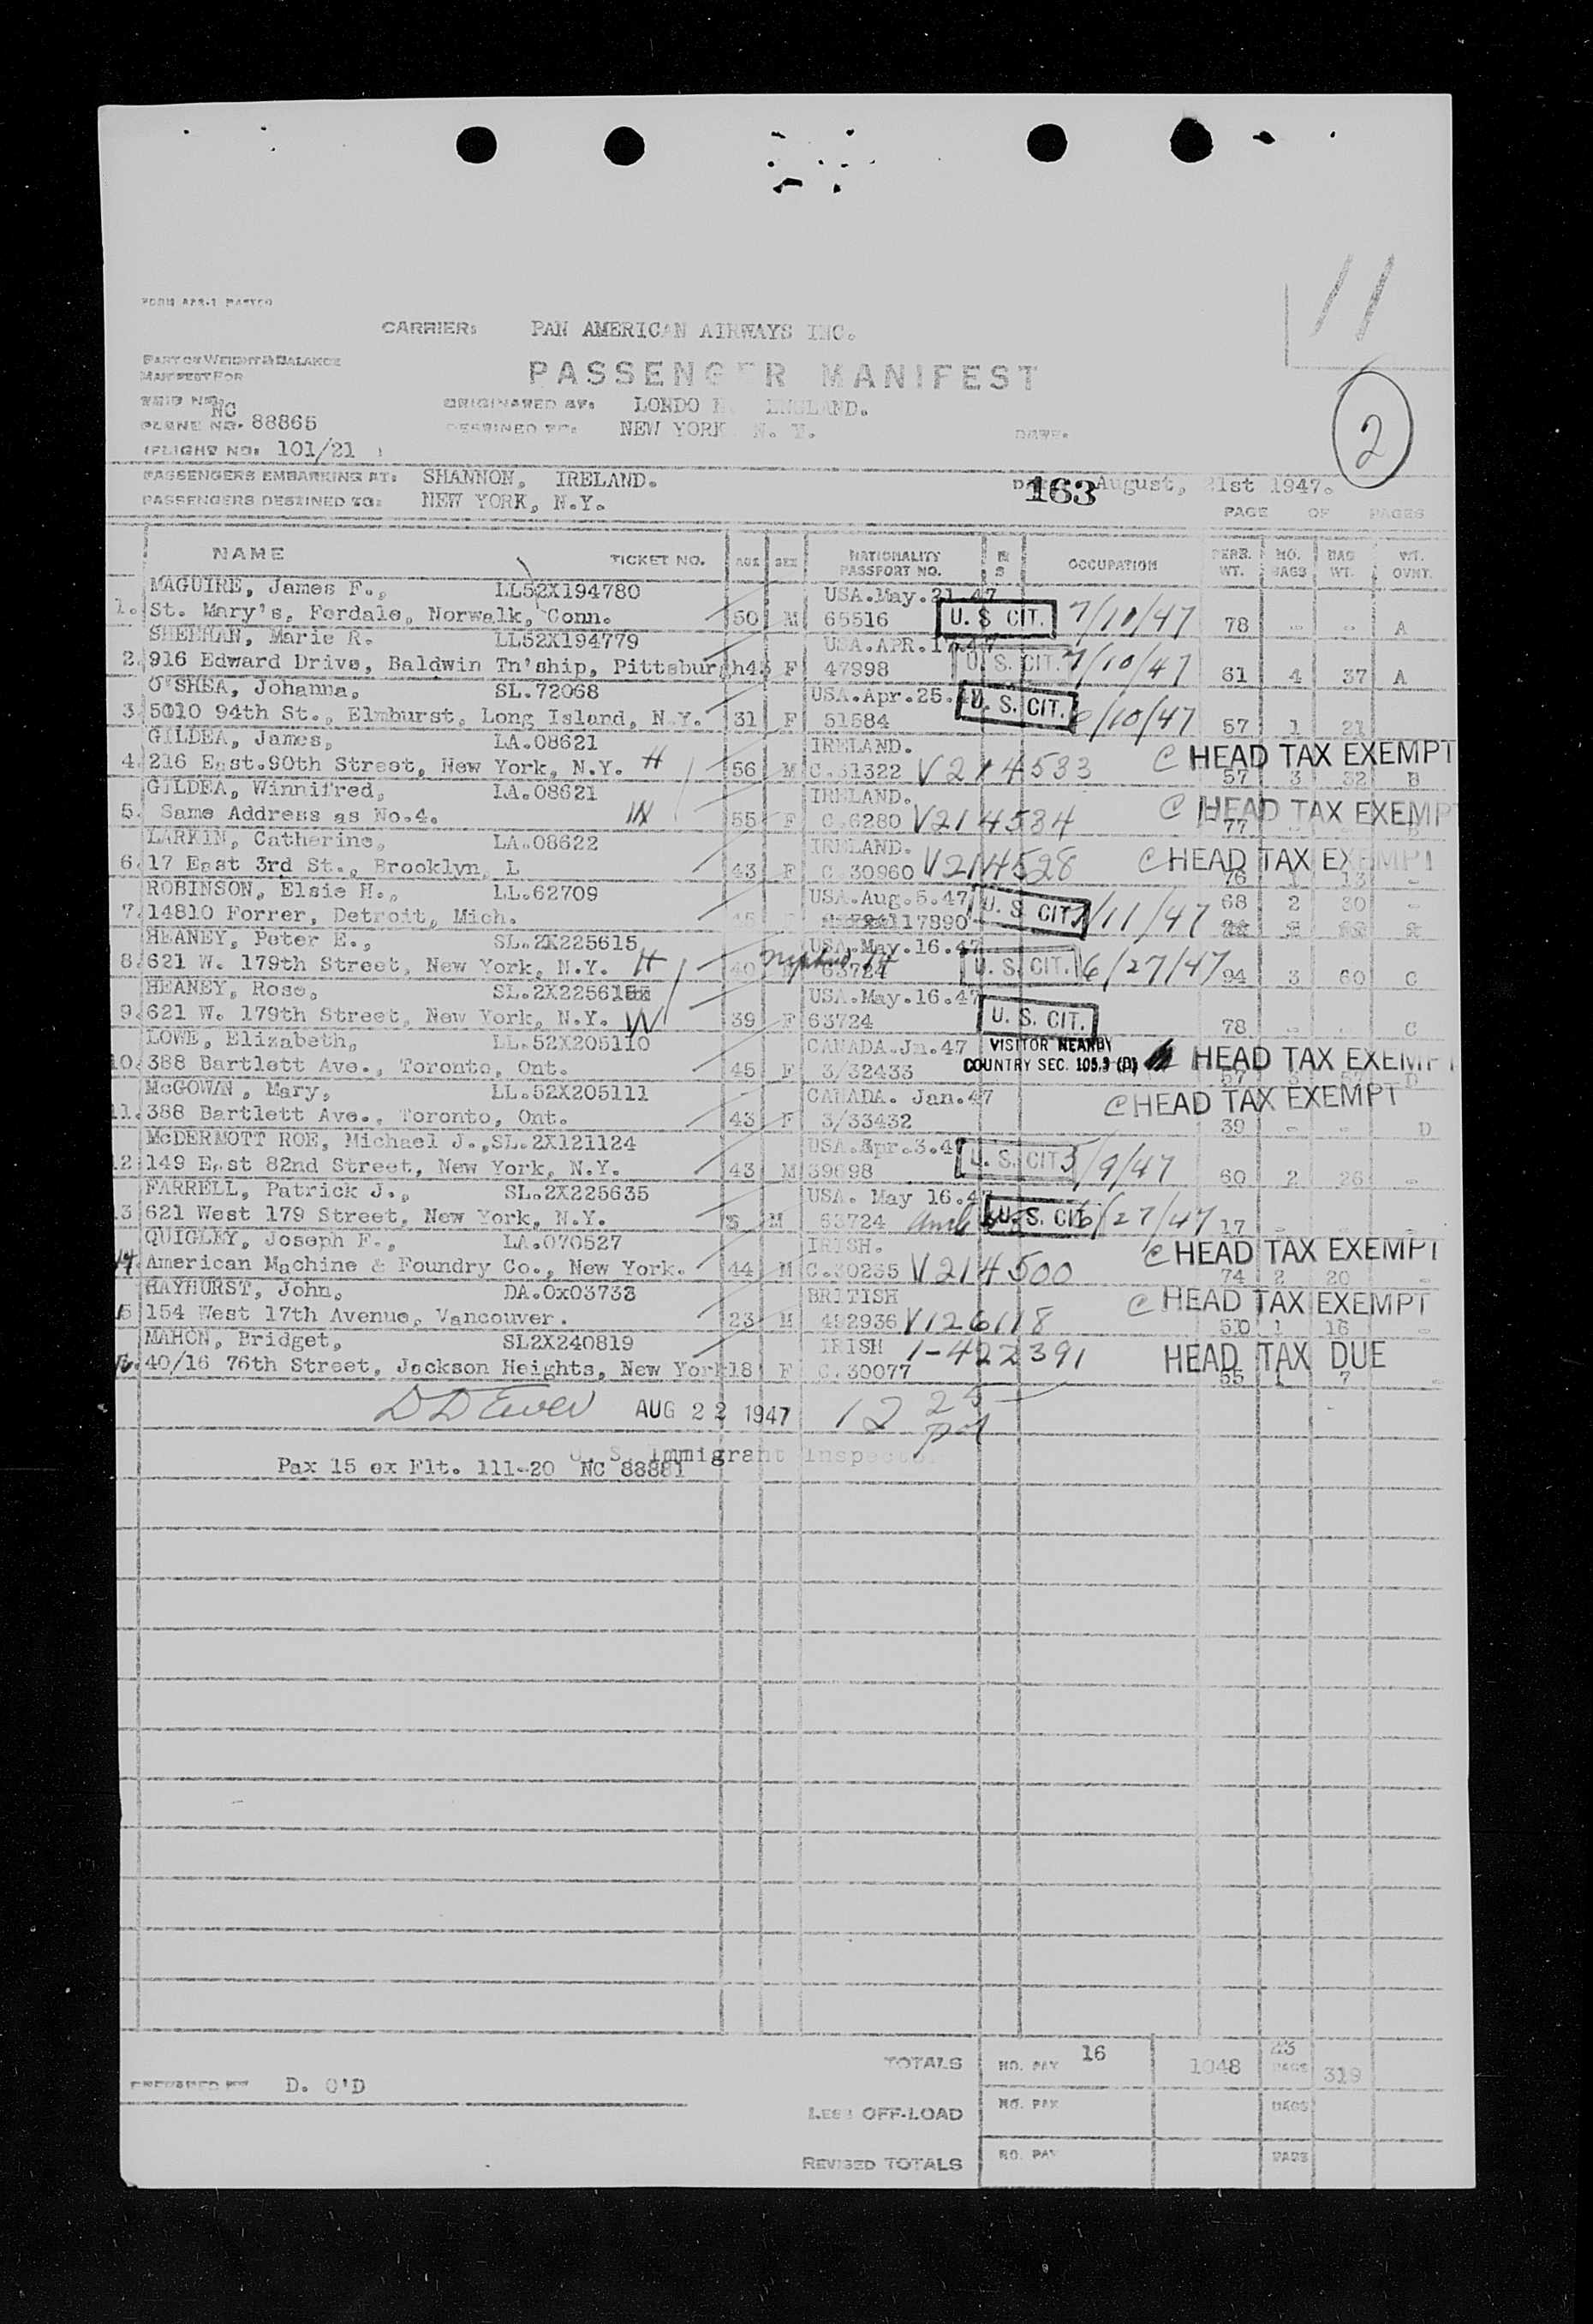 11
FORM APS-1
CARRIER: PAN AMERICAN AIRWAYS INC.
PART OF WEIGHT & BALANCE
MANIFEST FOR
PASSENGER MANIFEST
TRIP NO.
NC
ORIGINATED AT: LONDON ENGLAND.
PLANE NO. 88865
DESTINED TO: NEW YORK N. Y.
DATE:
2
FLIGHT NO: 101/21
PASSENGERS EMBARKING AT: SHANNON, IRELAND.
163 August, 21st 1947.
PASSENGERS DESTINED TO: NEW YORK, N.Y.
PAGE OF PAGES
NAME TICKET NO. AGE SEX NATIONALITY PASSPORT NO. M S OCCUPATION PERS. WT. NO. BAGS BAG WT. WT. OVNT.
MAGUIRE, James F., LL52X194780 USA.May.21.47
1. St. Mary's, Ferdale, Norwalk, Conn. 50 M 65516 U. S. CIT. 7/10/47 78 - - A
SHEEHAN, Marie R. LL52X194779 USA.APR.17.47
2. 916 Edward Drive, Baldwin Tn'ship, Pittsburgh F 47998 U. S. CIT. 7/10/47 61 4 37 A
O'SHEA, Johanna, SL.72068 USA.Apr.25.47
3. 94th St., Elmhurst, Long Island, N.Y. 31 F 51584 U. S. CIT. /10/47 57 1 21
GILDEA, James, LA.08621 IRELAND.
4. 216 East.90th Street, New York, N.Y. H 56 M C.31322 V214533 C HEAD TAX EXEMPT 57 3 32 B
GILDEA, Winnifred, LA.08621 IRELAND.
5. Same Address as No.4. W 55 F C.6280 V214534 C HEAD TAX EXEMP 77 - B
LARKIN, Catherine, LA.08622 IRELAND.
6. 17 East 3rd St., Brooklyn, L 43 F C.30960 V214528 C HEAD TAX EXEMPT 76 1 13 -
ROBINSON, Elsie H., LL.62709 USA.Aug.5.47
7. 14810 Forrer, Detroit, Mich. 45 F 117890 U. S. CIT. /11/47 68 2 30 -
HEANEY, Peter E., SL.2X225615 USA.May.16.47
8. 621 W. 179th Street, New York, N.Y. H 40 M 63724 U. S. CIT. 6/27/47 94 3 60 C
HEANEY, Rose, SL.2X22561 USA.May.16.47
9. 621 W. 179th Street, New York, N.Y. W 39 F 63724 U. S. CIT. 78 - - C
LOWE, Elizabeth, LL.52X205110 CANADA.Jn.47 VISITOR NEARBY
10. 388 Bartlett Ave., Toronto, Ont. 45 F 3/32433 COUNTRY SEC. 105.3 (D) HEAD TAX EXEMPT 57 3 D
McGOWAN, Mary, LL.52X205111 CANADA. Jan.47 C HEAD TAX EXEMPT
11. 388 Bartlett Ave., Toronto, Ont. 43 F 3/33432 39 - - D
McDERMOTT ROE, Michael J., SL.2X121124 USA.Apr.3.4
12 149 East 82nd Street, New York, N.Y. 43 M 39698 U. S. CIT. 5/9/47 60 2 26 -
FARRELL, Patrick J., SL.2X225635 USA. May 16.47
13 621 West 179 Street, New York, N.Y. 5 M 63724 U. S. CIT. 6/27/47 17 -
QUIGLEY, Joseph F., LA.070527 IRISH.
14. American Machine & Foundry Co., New York. 44 M C.30235 V214500 C HEAD TAX EXEMPT 74 2 20 -
HAYHURST, John, DA.0x03733 BRITISH
15 154 West 17th Avenue, Vancouver. 23 M 492936 V126118 C HEAD TAX EXEMPT 50 1 16 -
MAHON, Bridget, SL2X240819 IRISH 1-422391
16. 40/16 76th Street, Jackson Heights, New York 18 F C.30077 HEAD TAX DUE 55 1 7 -
AUG 22 1947 12 25 PM
U. S. Immigrant Inspector
Pax 15 ex Flt. 111-20 NC 88881
TOTALS NO. PAX 16 1048 23 BAGS 319
PREPARED BY D. O'D
LESS OFF-LOAD NO. PAX BAGS
REVISED TOTALS NO. PAX BAGS